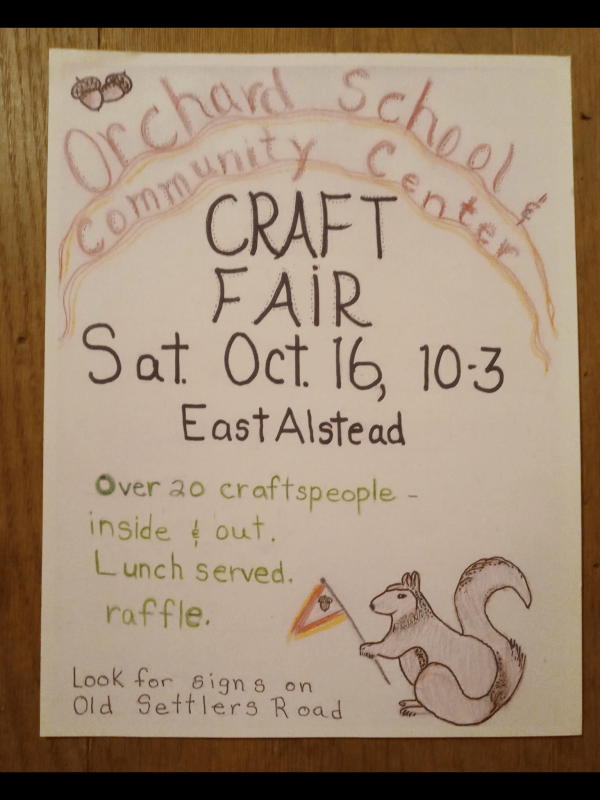 Orchard School &
Community Center
CRAFT
FAiR
Sat. Oct. 16, 10-3
East Alstead
Over 20 craftspeople -
inside & out.
Lunch served.
raffle.
Look for signs on
Old Settlers Road